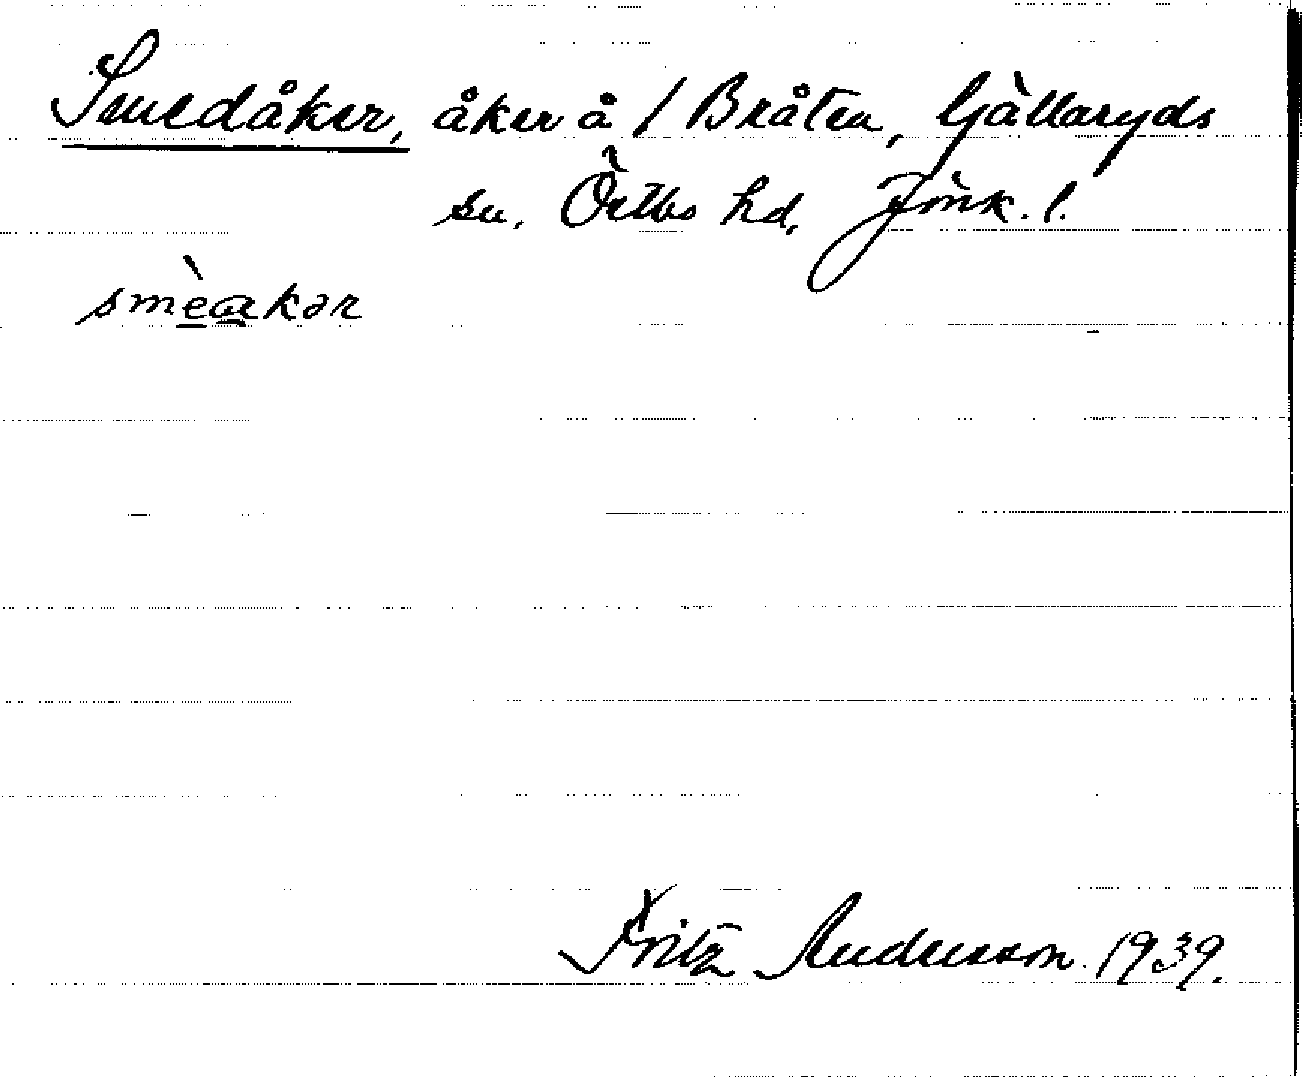 Smedåker, åker å / Bråten, Gällaryds
sn. Östbo hd, Jönk. l.
smèakər
Fritz Andersson 1939.